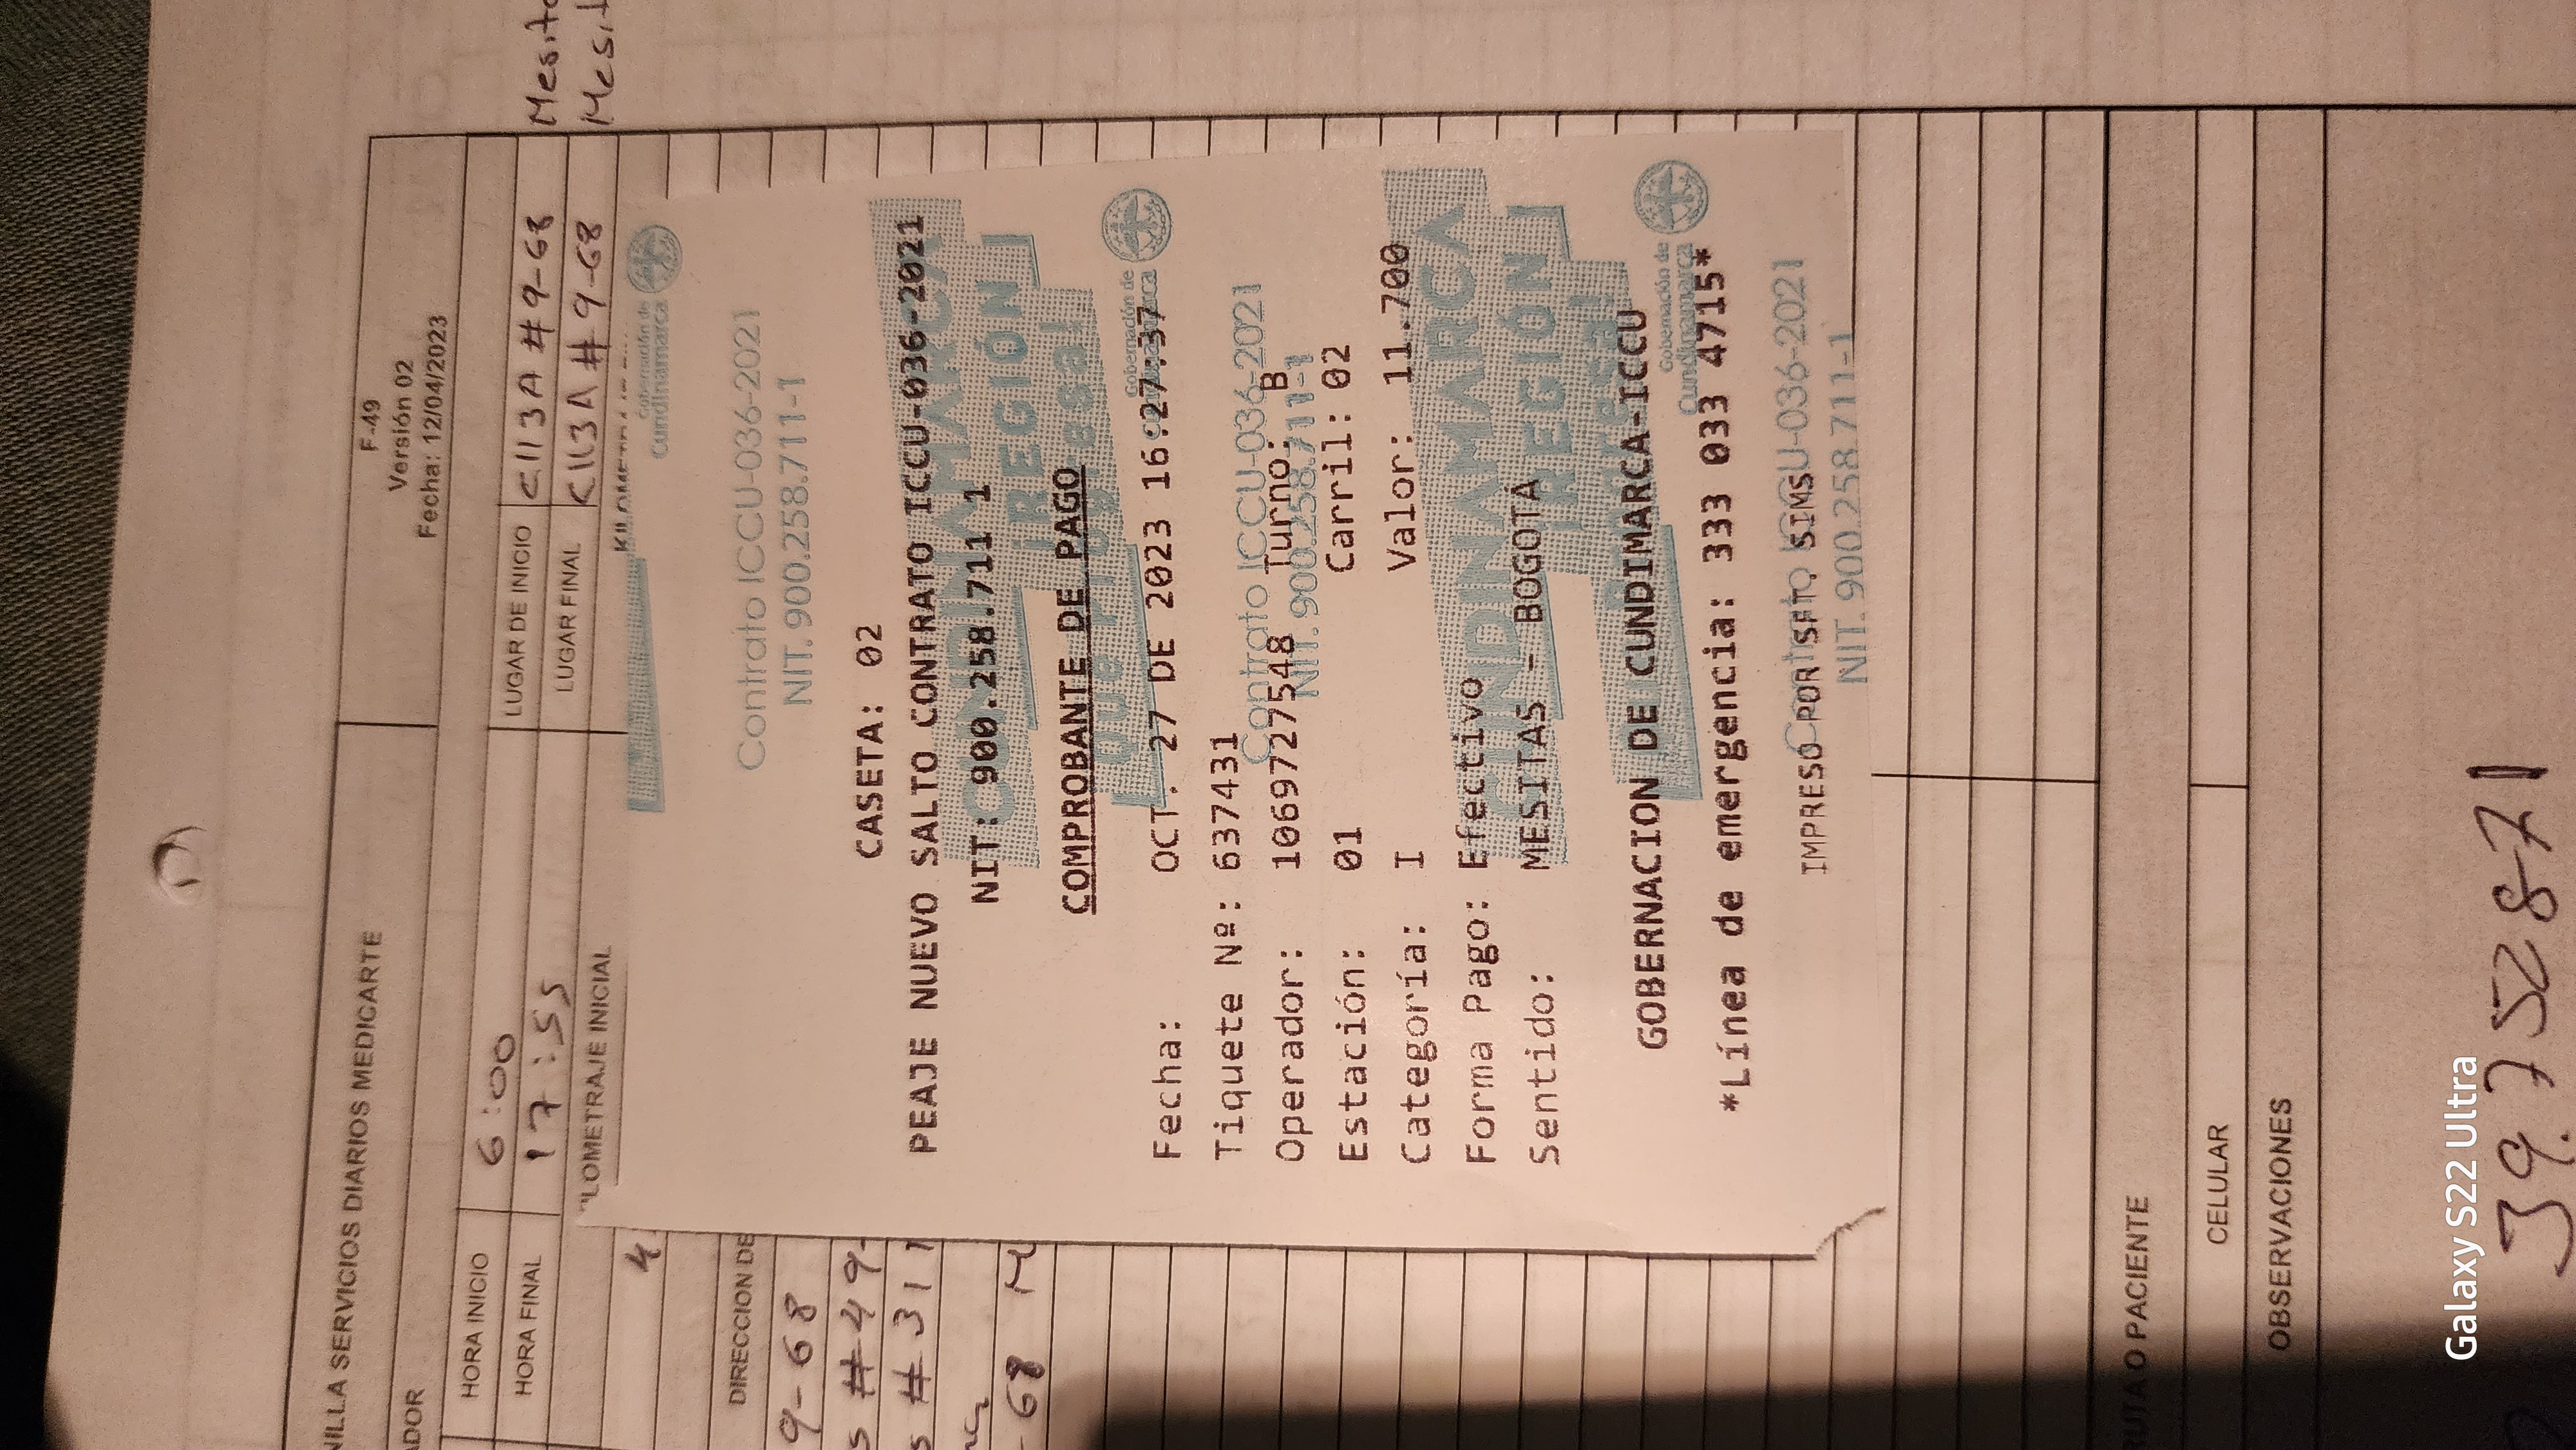 F-49
Versión 02
Fecha: 12/04/2023
SERVICIOS DIARIOS MEDICARTE
HORA INICIO 6:00 LUGAR DE INICIO Cll 3A #9-68
HORA FINAL 17:55 LUGAR FINAL Cll 3A #9-68
INICIAL
4
DIRECCION DE
9-68
#49-
#311
68 M
Gobernación de
Cundinamarca
Contrato ICCU-036-2021
NIT. 900.258.711-1
CASETA: 02
PEAJE NUEVO SALTO CONTRATO ICCU-036-2021
NIT: 900.258.711 1
COMPROBANTE DE PAGO
Fecha: OCT. 27 DE 2023 16:27:37
Tiquete Nº: 637431
Operador: 1069727548 Turno: B
Estación: 01 Carril: 02
Categoría: I Valor: 11.700
Forma Pago: Efectivo
Sentido: MESITAS - BOGOTÁ
GOBERNACION DE CUNDIMARCA-ICCU
*Línea de emergencia: 333 033 4715*
IMPRESO POR SFTO. SIMS
Gobernación de
Cundinamarca
Contrato ICCU-036-2021
NIT. 900.258.711-1
CUNDINAMARCA
¡REGIÓN
Que Progresa!
Gobernación de
Cundinamarca
Contrato ICCU-036-2021
NIT. 900.258.711-1
O PACIENTE
CELULAR
OBSERVACIONES
39.752871
Galaxy S22 Ultra